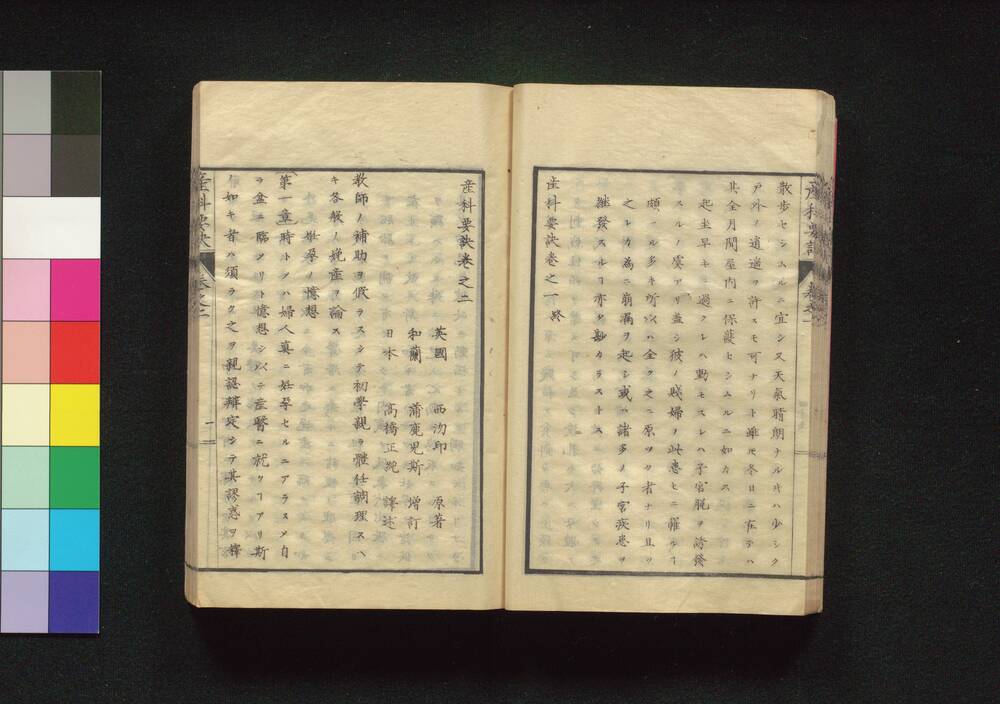 散歩セシムルニ宜シ又天氣晴朗ナルヰハ少シク
戸外ノ逍遥ヲ許スモ可ナリト雖𪜈冬日ニ在テハ
其全月間屋内ニ保護セシムルニ如カス
起坐早キニ過クレハ動モスレハ子宮脱ヲ誘發
スルノ虞アリ蓋シ彼ノ賤婦ノ此患ヒニ罹ルヿ
頗ル多キ所以ハ全ク之ニ原ツク者ナリ且ツ
之レカ為ニ崩漏ヲ起シ或ハ諸多ノ子宮疾患ヲ
継發スルヿ亦タ尠カラストス
産科要訣巻之一終
産科要訣 巻之一
産科要訣巻之二
英國 西氵印 原著
和蘭 蒲寛児斯 増訂
日本 高橋正純 譯述
教師ノ補助ヲ假ラスシテ初學親ラ體任調理スヘ
キ各般ノ娩産ヲ論ス
妊孕ノ憶想
第一章時トクハ婦人真ニ妊孕セルニアラスメ自
ラ盆ニ臨メリト憶想シ以テ産醫ニ就クヿアリ斯
ノ如キ者ハ須ラク之ヲ親認辨定シテ其謬惑ヲ釋
産科要訣 巻之二 一